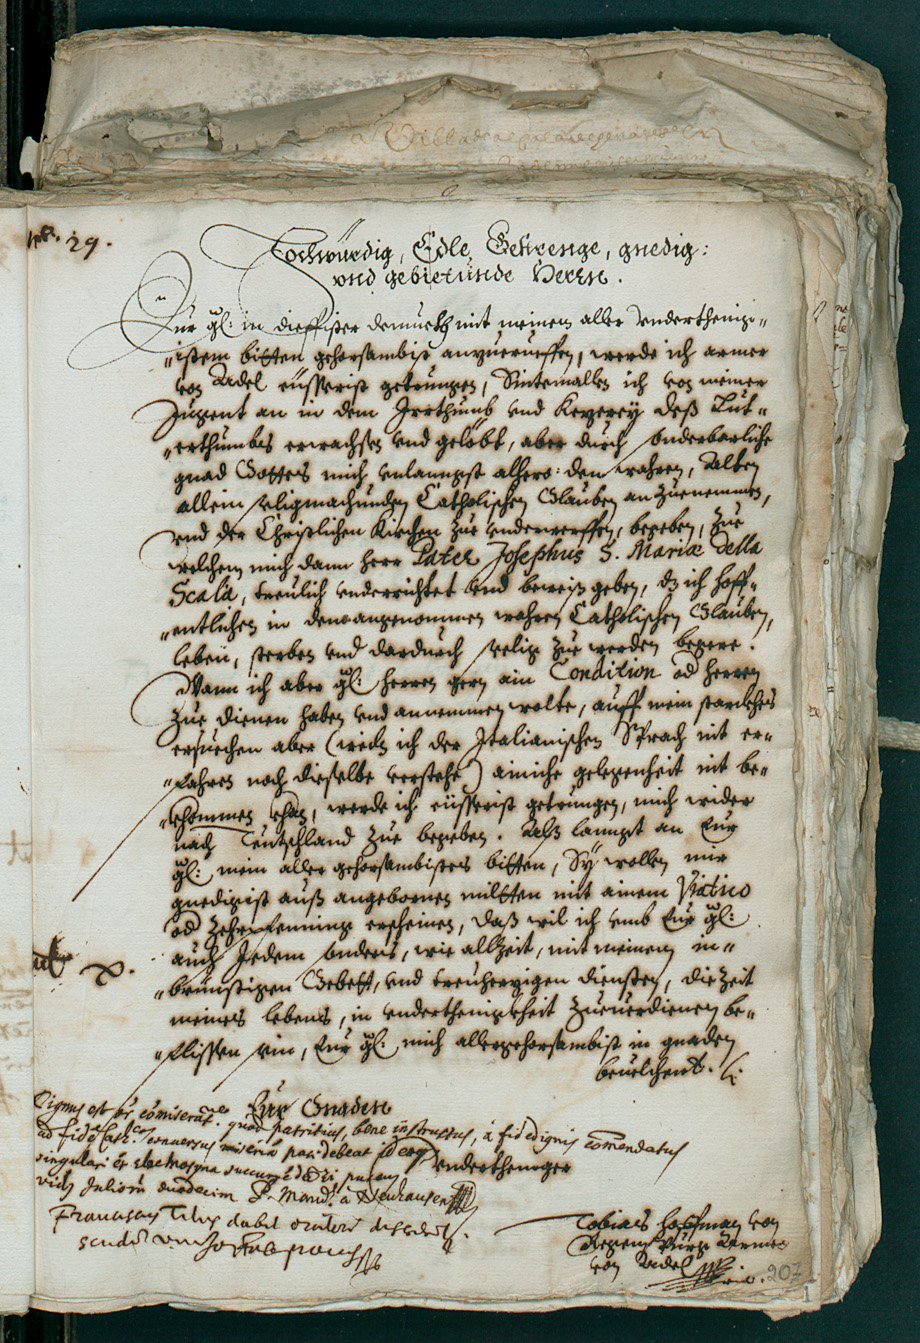 29.
Hochwürdig, Edle, Gestrenge, gnedig:
vnd gebietunde Herrn.
Eur gl: in dieffister demueth mit meinem aller vnderthenigi-
-istem bitten gehorsambist anzueruffen, werde ich armer
von Adel eüsserist getrungen, Sintemallen ich von meiner
Jugent an in dem Jrrthumb vnd Kezerey deß Lut-
-erthumbs erwachsen vnd gelebt, aber durch sonderbarliche
gnad Gottes mich vnlanngst alhero: den wahren, Alten
allein seligmachunden Catholischen Glauben an Zuenemmen,
vnd der Christlichen Kirchen Zue vnderwerffen, begeben, Zue
welchem mich dann herr Pater Josephus S. Mariæ Della
Scala, treulich vnderrichtet vnd beweiß geben, dz ich hoff-
-entlichen in dem angenommen wahren Catholischen Glauben,
leben, sterben vnd dardurch selig Zue werden begere.
Wann ich aber gl: herren gern ain Condition od herren
Zue dienen haben vnd annemmen wolte, auff mein starckhes
ersuechen aber (weiln ich der Italianischen Sprach nit er-
-fahren noch dieselbe verstehe) ainiche gelegenheit nit be-
-khommen khan, werde ich eüsserist getrungen, mich wider
nach Teutschland Zue begeben. Alß lanngt an Eur
gl: mein aller gehorsambistes bitten, Sÿ wollen mir
gnedigist auß angebornen milten mit ainem Viatico
od Zehrpfenning erscheinen, daß wil ich vmb Eur gl:
auch Jedem sonders, wie allzeit, mit meinem in-
-brünstigen Gebett, vnd treuherzigen diensten, die Zeit
meines lebens, in vnderthenigkheit Zuuerdienen be-
-flissen sein, Eur gl: mich allergehorsambist in gnaden
beuelchent.
Eur Gnaden
Dignus est cõmiserat. quod patritius, bene instructus, à fide dignis comendatus
ad fidẽ Cath. conversus miseriã patidebeat ideoq
vnderthenger
singulari eleemosyna succurrẽdũ ei putem
Julioru duodecim P. à Neuhausen
Franciscus Titus dabit oratori
scuda
Tobias Hoffman von
Regenspurg Armer
von Adel
207
1